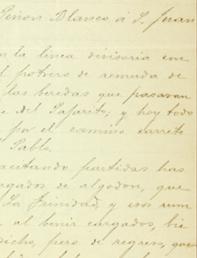 Peñon Blanco á S. Juan
la linea divisoria con
l potrero de remuda de
las beredas que pasavan
e del Pajarito; y hoy todo
por el camino carrete
Pablo.
acutando partidas has
rgados de algodon, que
La Trinidad, y son rum
al benir cargados, bie
dicho, pero de regreso, que